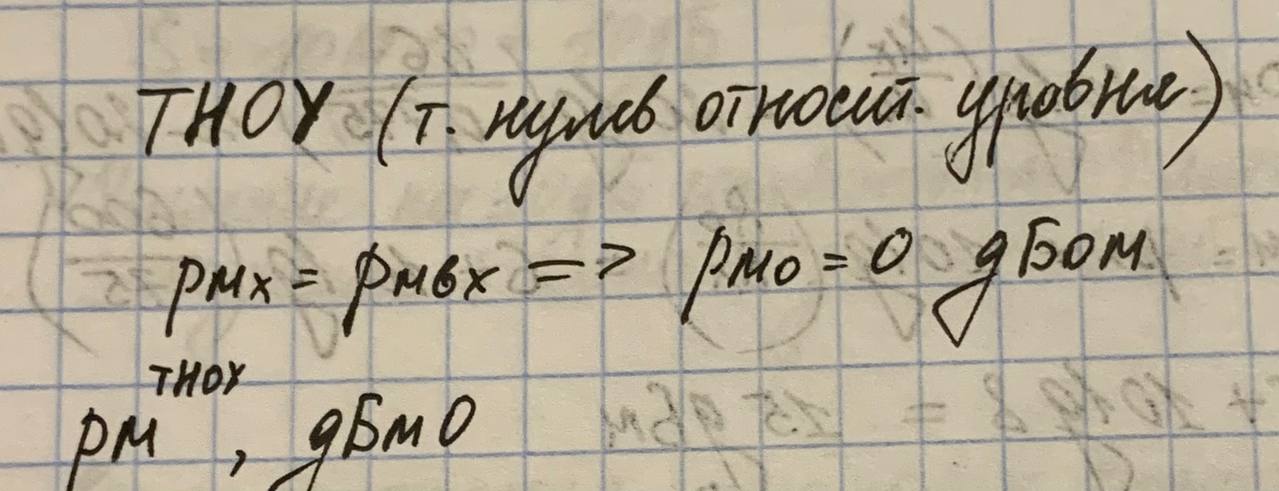 ТНОУ (т. нулев относит. уровня)
рмх = рмвх => рмо = 0 дБом
рм ТНОУ, дБм0